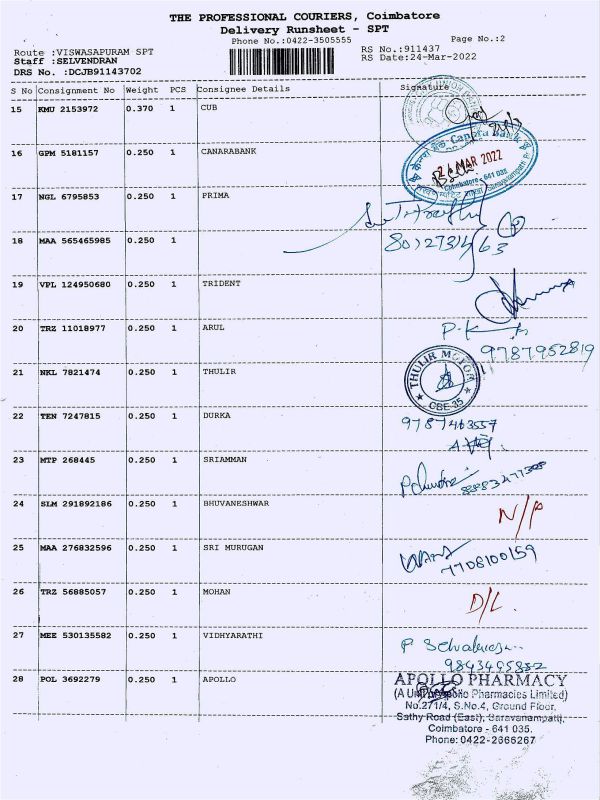 THE PROFESSIONAL COURIERS, Coimbatore
Delivery Runsheet - SPT
Phone No.:0422-3505555
Page No.:2
Route :VISWASAPURAM SPT
RS No.:911437
Staff :SELVENDRAN
RS Date:24-Mar-2022
DRS No. :DCJB91143702
S No Consignment No Weight PCS Consignee Details Signature
15 KMU 2153972 0.370 1 CUB
16 GPM 5181157 0.250 1 CANARABANK
Canara Bank
24 MAR 2022
Coimbatore - 641 035
17 NGL 6795853 0.250 1 PRIMA
18 MAA 565465985 0.250 1
19 VPL 124950680 0.250 1 TRIDENT
20 TRZ 11018977 0.250 1 ARUL
9787952819
21 NKL 7821474 0.250 1 THULIR
THULIR MOTOR
CBE-35
22 TEN 7247815 0.250 1 DURKA
9787463557
23 MTP 268445 0.250 1 SRIAMMAN
24 SLM 291892186 0.250 1 BHUVANESHWAR N/P
25 MAA 276832596 0.250 1 SRI MURUGAN
7708100159
26 TRZ 56885057 0.250 1 MOHAN D/L.
27 MEE 530135582 0.250 1 VIDHYARATHI
28 POL 3692279 0.250 1 APOLLO
APOLLO PHARMACY
(A Unit of Apollo Pharmacies Limited)
No.271/4, S.No.4, Ground Floor,
Sathy Road (East), Saravanampatti,
Coimbatore - 641 035.
Phone: 0422-2666267